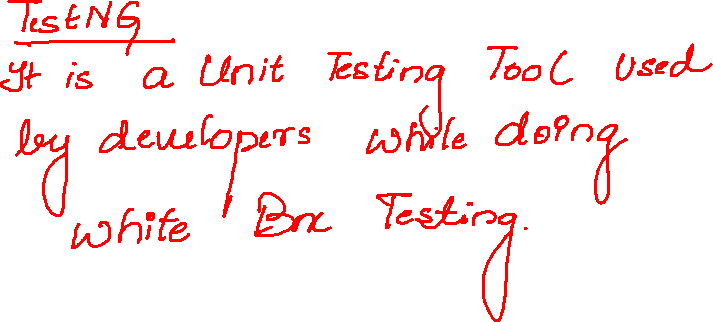 TestNG
It is a Unit Testing Tool used
by developers while doing
white Box Testing.